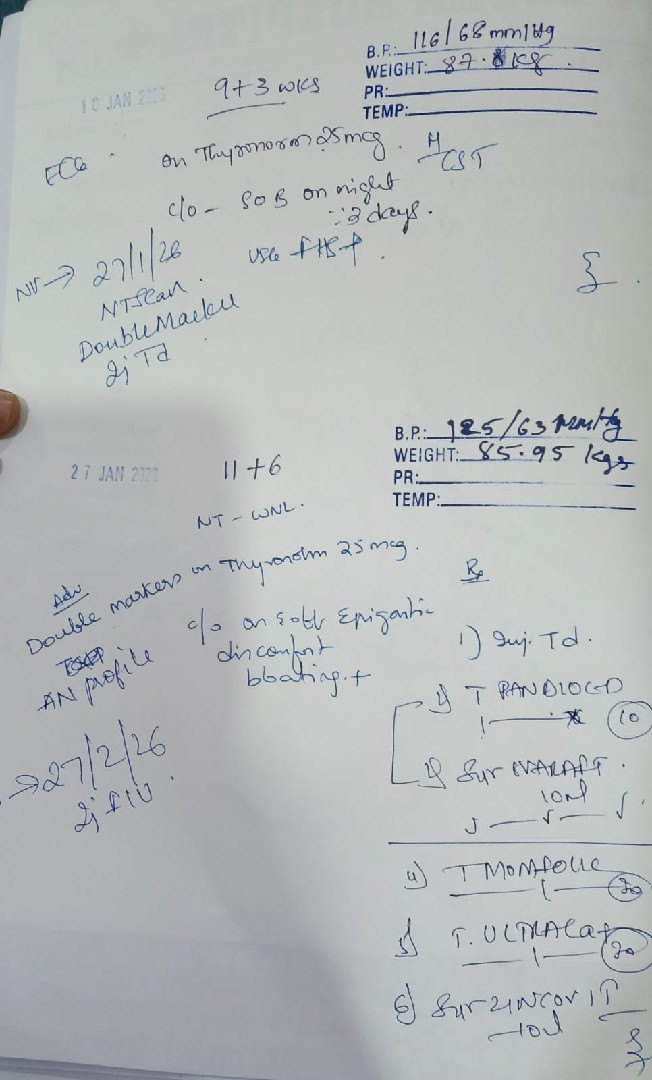 B.P.: 116/68 mmHg
WEIGHT: 87.8 Kg.
PR:
TEMP:
10 JAN
9+3 wks
ECG
on Thyronorm 25mcg.
CST
c/o - SOB on night
3 days.
27/1/26
NT Scan.
Double Marker
Inj Td
B.P.: 125/63 mmHg
WEIGHT: 85.95 kgs
PR:
TEMP:
27 JAN
11+6
NT - WNL.
Adv
Double markers
on Thyronorm 25 mcg.
AN profile
c/o on & off Epigastric
discomfort
bloating +
→ 27/2/26
Rx
1) Inj. Td.
T PANDLOCD
10
Syr
10ml
4) T
30
5) T. ULTRACAL
30
6) Syr ZINCOVIT
10ml